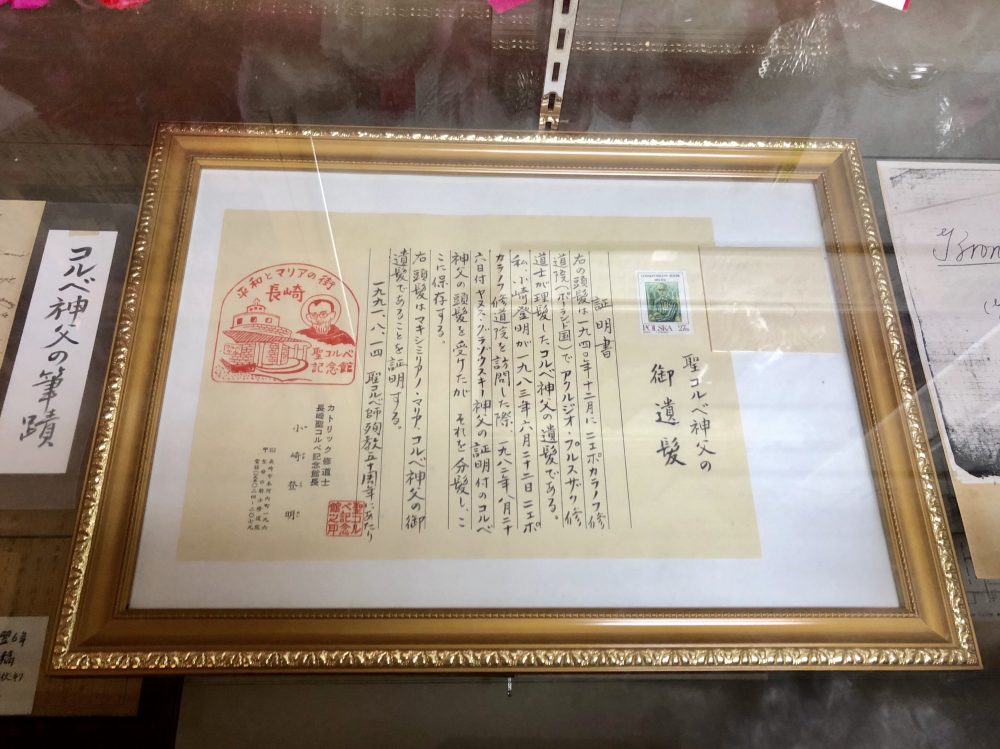 聖コルベ神父の
御遺髪
POLSKA
証明書
右の頭髪は一九四〇年十二月にニエポカラノフ修
道院(ポーランド国)でアクルジオ・プルスザク修
道士が理髪したコルベ神父の遺髪である。
私・小崎登明が一九八三年六月二十二日ニエポ
カラノフ修道院を訪問した際、一九八二年八月二十
六日付ヤヌス・グラゾウスキー神父の証明付のコルベ
神父の頭髪を受けたが、それを分髪し、こ
こに保存する。
右頭髪はマキシミリアノ・マリア、コルベ神父の御
遺髪であることを証明する。
一九九一、八、一四 聖コルベ師殉教五十周年にあたり
カトリック修道士
長崎聖コルベ記念館長
小崎登明
聖コル
ベ記念
館之印
平和とマリアの街
長崎
聖コルベ
記念館
コルベ神父の筆蹟